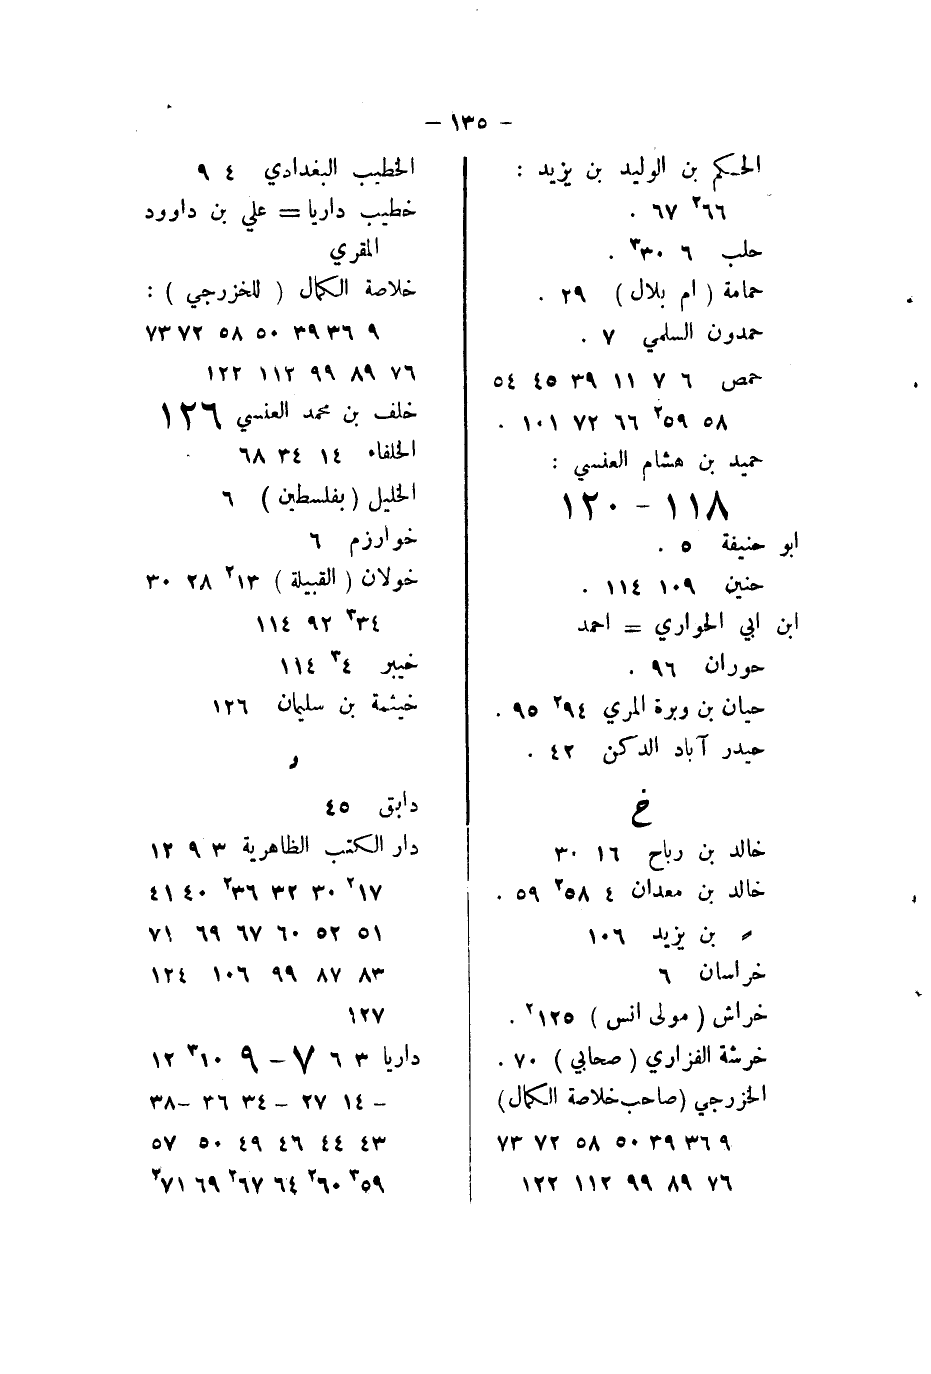 - ١٣٥ -
الحكم بن الوليد بن يزيد :
٦٦٢ ٦٧ .
حلب ٦ ٣٠٣ .
حمامة ( ام بلال ) ٢٩ .
حمدون السلمي ٧ .
حمص ٦ ٧ ١١ ٣٩ ٤٥ ٥٤
٥٨ ٥٩٢ ٦٦ ٧٢ ١٠١ .
حميد بن هشام العنسي :
١١٨ - ١٢٠
ابو حنيفة ٥ .
حنين ١٠٩ ١١٤ .
ابن ابي الحواري = احمد
حوران ٩٦ .
حيان بن وبرة المري ٩٤٢ ٩٥ .
حيدر آباد الدكن ٤٢ .
خ
خالد بن رباح ١٦ ٣٠
خالد بن معدان ٤ ٥٨٢ ٥٩ .
» بن يزيد ١٠٦
خراسان ٦
خراش ( مولى انس ) ١٢٥٢ .
خرشة الفزاري ( صحابي ) ٧٠ .
الخزرجي (صاحب خلاصة الكمال)
٩ ٣٦ ٣٩ ٥٠ ٥٨ ٧٢ ٧٣
٧٦ ٨٩ ٩٩ ١١٢ ١٢٢
الخطيب البغدادي ٤ ٩
خطيب داريا = علي بن داوود
المقري
خلاصة الكمال ( للخزرجي ) :
٩ ٣٦ ٣٩ ٥٠ ٥٨ ٧٢ ٧٣
٧٦ ٨٩ ٩٩ ١١٢ ١٢٢
خلف بن محمد العنسي ١٢٦
الخلفاء ١٤ ٣٤ ٦٨
الخليل ( بفلسطين ) ٦
خوارزم ٦
خولان ( القبيلة ) ١٣٢ ٢٨ ٣٠
٣٤٣ ٩٢ ١١٤
خيبر ٤٣ ١١٤
خيثمة بن سليمان ١٢٦
د
دابق ٤٥
دار الكتب الظاهرية ٣ ٩ ١٢
١٧٢ ٣٠ ٣٢ ٣٦٢ ٤٠ ٤١
٥١ ٥٢ ٦٠ ٦٧ ٦٩ ٧١
٨٣ ٨٧ ٩٩ ١٠٦ ١٢٤
١٢٧
داريا ٣ ٦ ٧ - ٩ ١٠٣ ١٢
- ١٤ ٢٧ - ٣٤ ٣٦ - ٣٨
٤٣ ٤٤ ٤٦ ٤٩ ٥٠ ٥٧
٥٩٣ ٦٠٢ ٦٤ ٦٧٢ ٦٩ ٧١٢